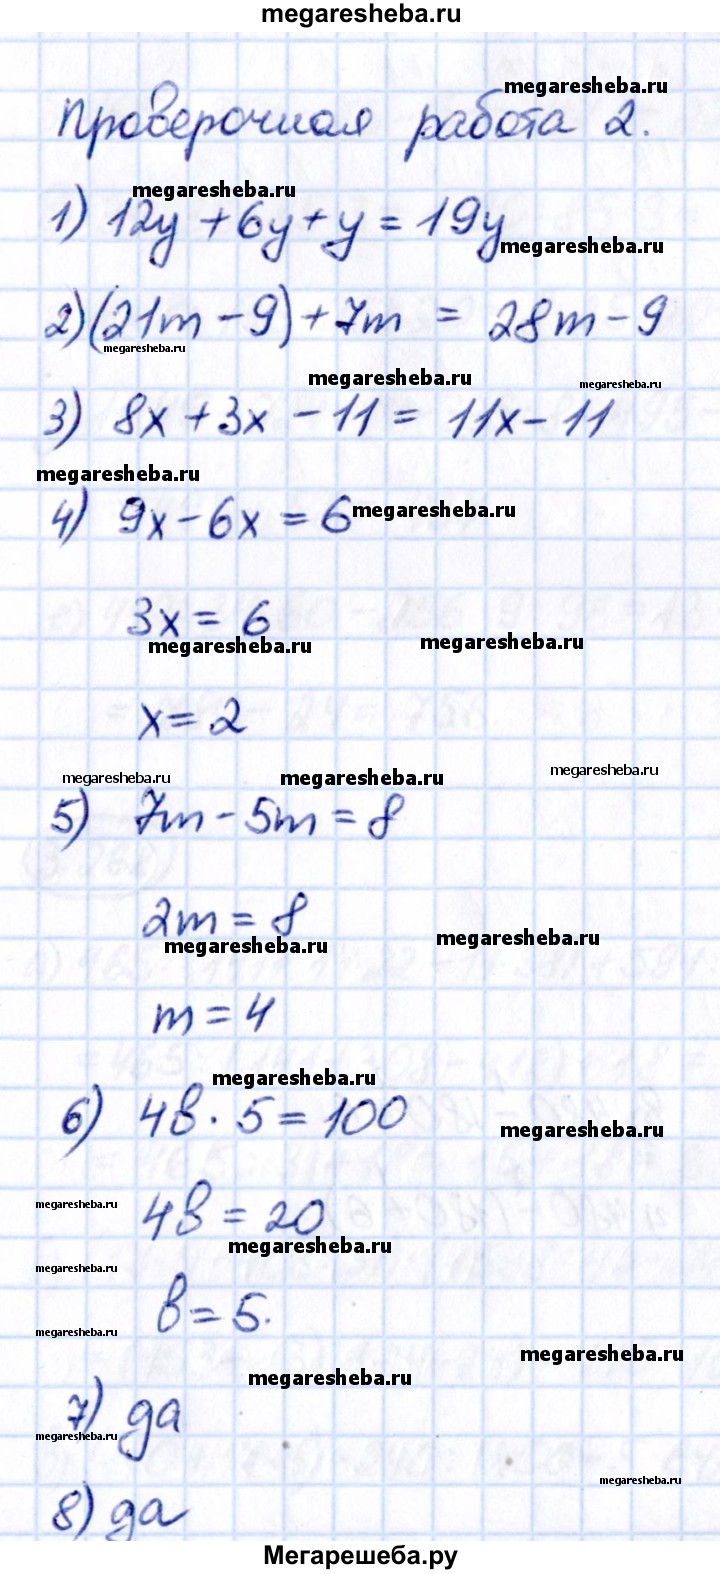 megaresheba.ru
megaresheba.ru
Проверочная работа 2.
megaresheba.ru
1) 12y + 6y + y = 19y
megaresheba.ru
2) (21m - 9) + 7m = 28m - 9
megaresheba.ru
megaresheba.ru
megaresheba.ru
3) 8x + 3x - 11 = 11x - 11
megaresheba.ru
4) 9x - 6x = 6
megaresheba.ru
3x = 6
megaresheba.ru
megaresheba.ru
x = 2
megaresheba.ru
megaresheba.ru
megaresheba.ru
5) 7m - 5m = 8
2m = 8
megaresheba.ru
megaresheba.ru
m = 4
megaresheba.ru
6) 4в · 5 = 100
megaresheba.ru
megaresheba.ru
4в = 20
megaresheba.ru
megaresheba.ru
в = 5.
megaresheba.ru
megaresheba.ru
megaresheba.ru
7) да
megaresheba.ru
megaresheba.ru
8) да
Мегарешеба.ру